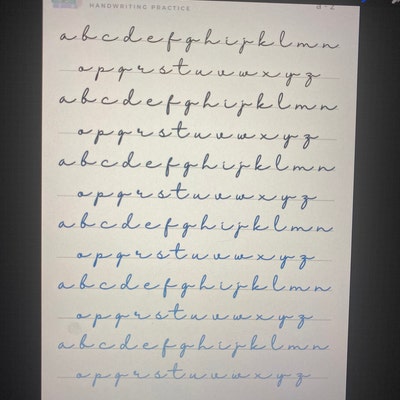 HANDWRITING PRACTICE
a - z
a b c d e f g h i j k l m n
o p q r s t u v w x y z
a b c d e f g h i j k l m n
o p q r s t u v w x y z
a b c d e f g h i j k l m n
o p q r s t u v w x y z
a b c d e f g h i j k l m n
o p q r s t u v w x y z
a b c d e f g h i j k l m n
o p q r s t u v w x y z
a b c d e f g h i j k l m n
o p q r s t u v w x y z